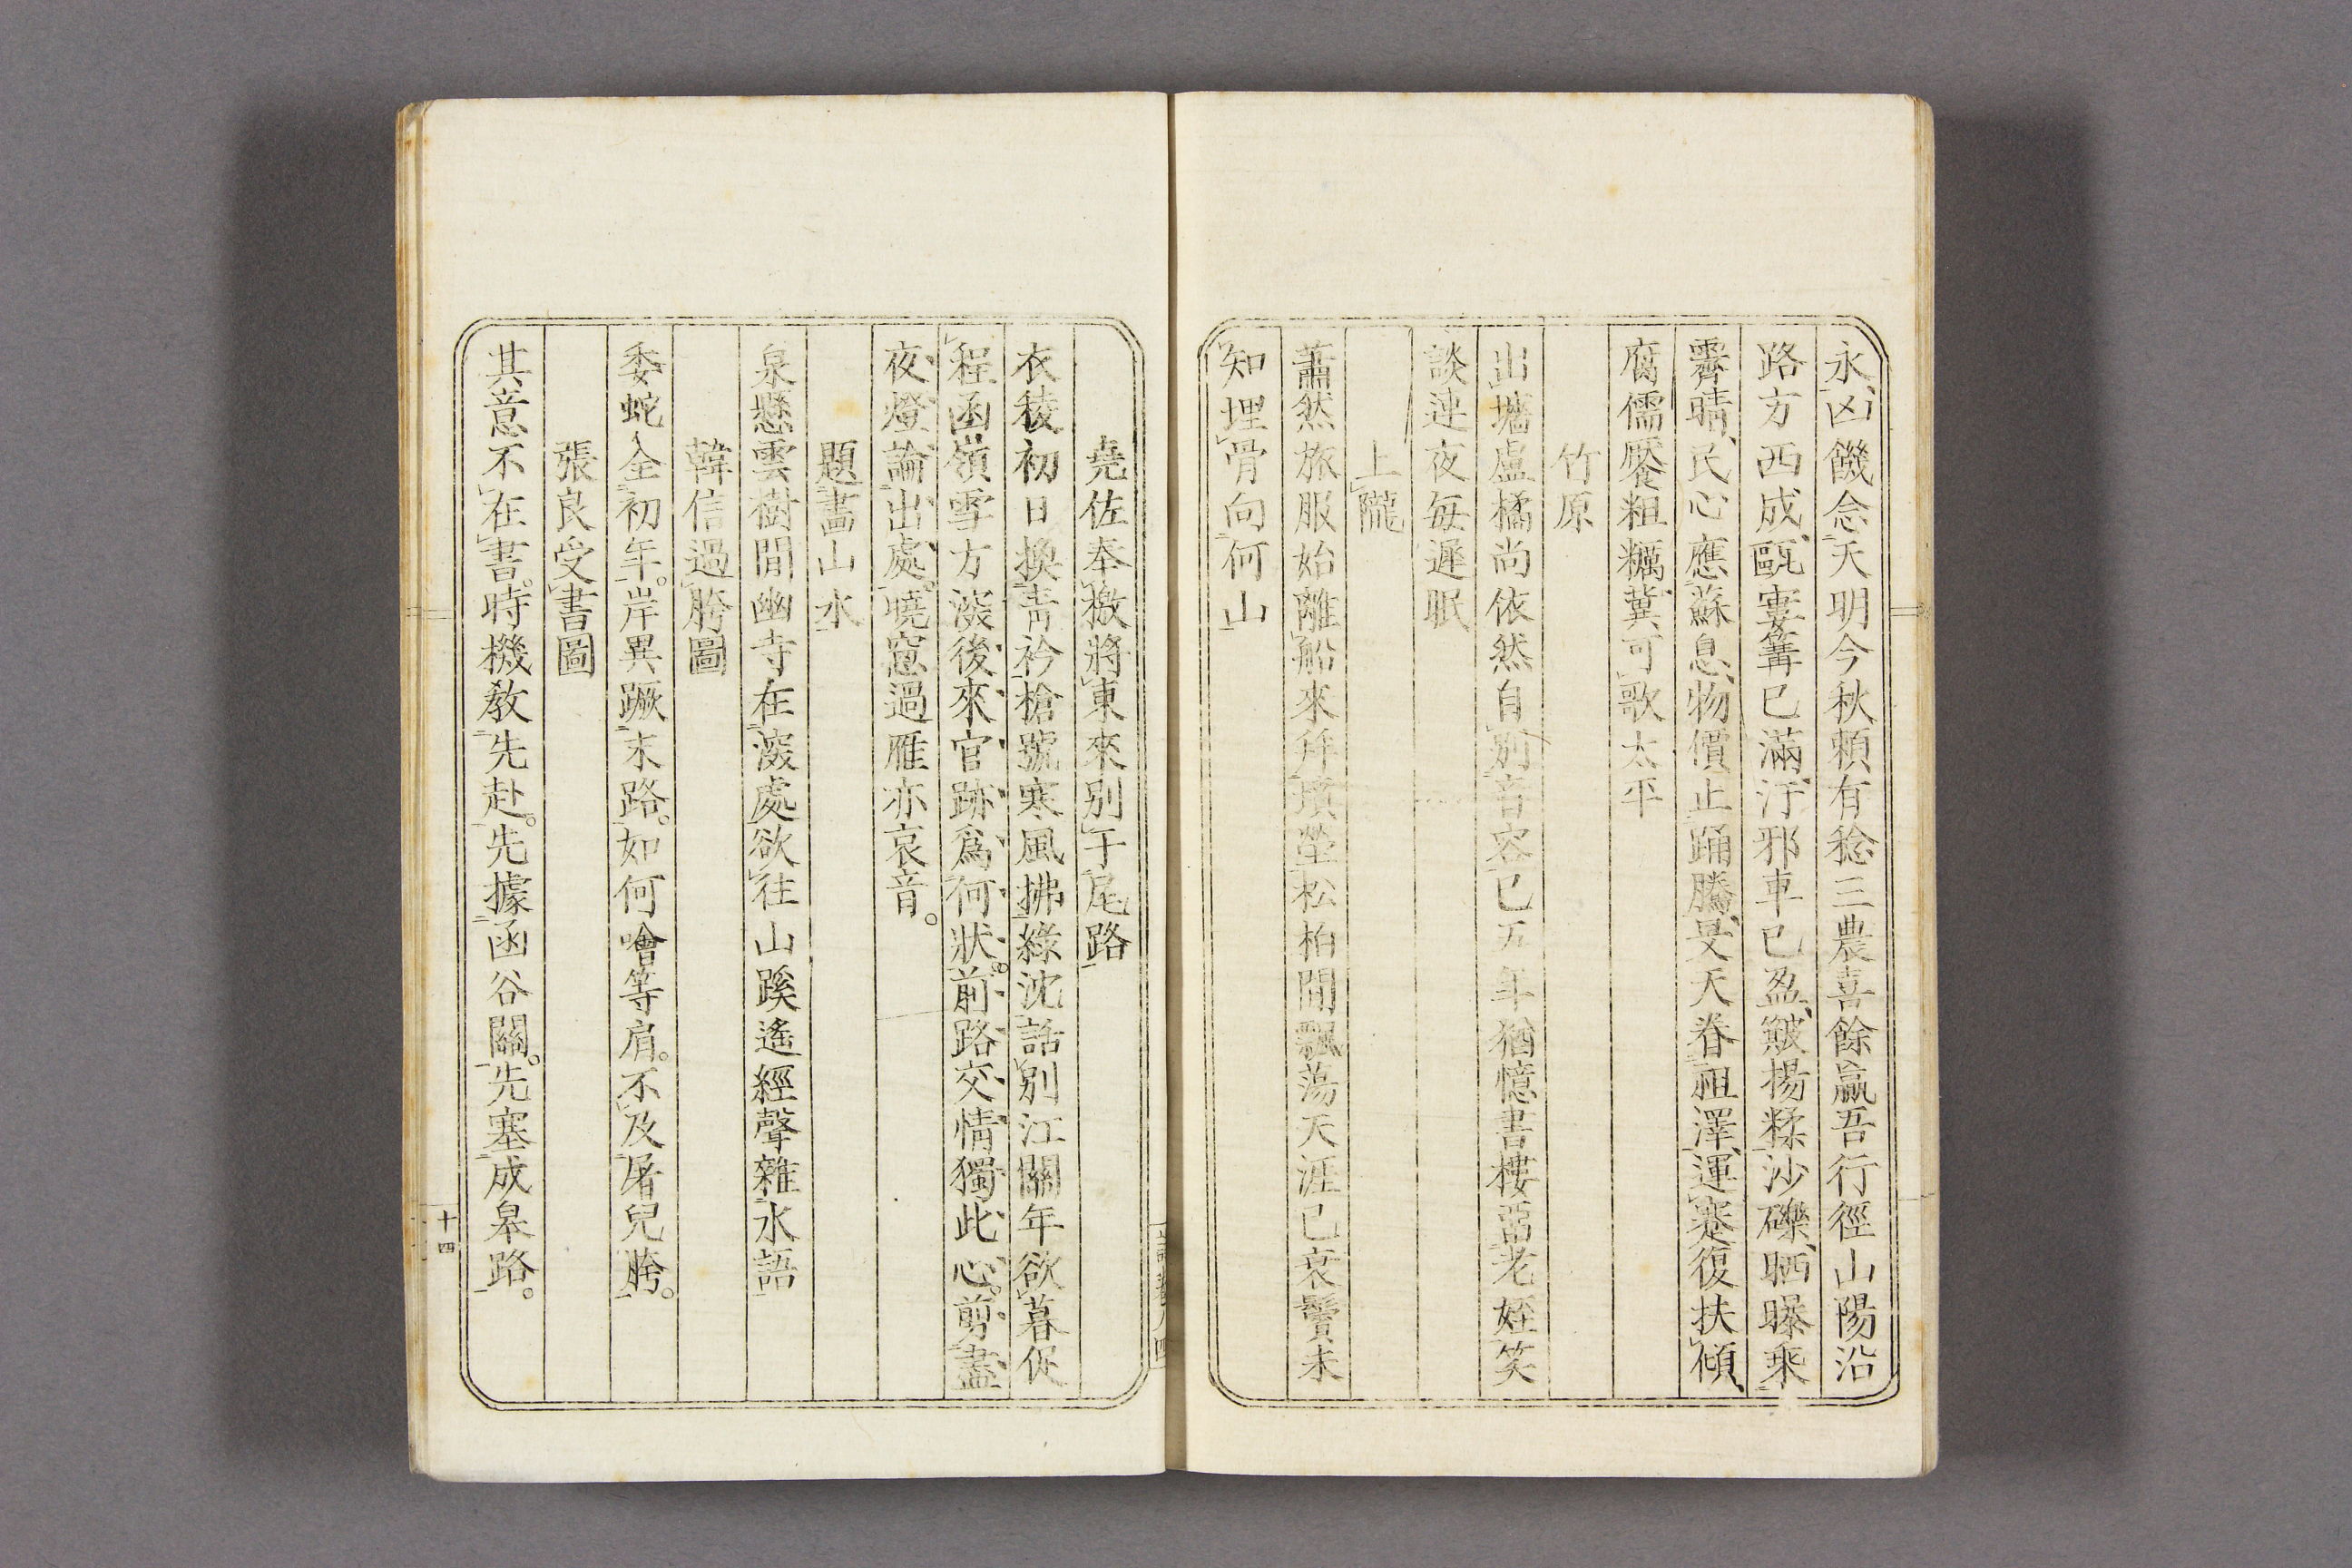 永凶饑念天明今秋頼有稔三農喜餘贏吾行徑山陽沿
路方西成甌寠篝已滿汙邪車已盈簸揚糅沙礫晒曝乘
霽晴民心應蘇息物價止踊騰旻天眷祖澤運蹇復扶傾
腐儒饜粗糲冀可歌太平
竹原
出墻盧橘尚依然自別音容已五年猶憶書樓亞老姪笑
談連夜每遲眠
上隴
蕭然旅服始離船來拜墳塋松柏間飄蕩天涯已衰鬢未
知埋骨向何山
堯佐奉檄將東來別于尾路
衣稜初日換青衿槍號寒風拂綠沈話別江關年欲暮促
程函嶺雪方深後來官跡爲何狀。前路交情獨此心。剪盡
夜燈論出處。曉窓過雁亦哀音。
題畵山水
泉懸雲樹間幽寺在深處欲往山蹊遙經聲雜水語
韓信過胯圖
委蛇全初年。岸異蹶末路。如何噲等肩。不及屠兒胯。
張良受書圖
其意不在書。時機教先赴。先據函谷關。先塞成皋路。
十四